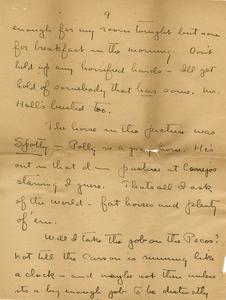 9
enough for my room tonight but none
for breakfast in the morning. Don't
hold up any horrified hands - I'll get
hold of somebody that has some. Mr.
Hall's busted too.
The horse in the picture was
Spotty - Polly is a gray horse. He's
out in that d— pasture at Conejos
starving I guess. That's all I ask
of the world - fat horses and plenty
of 'em.
Will I take the job on the Pecos?
not till the Carson is running like
a clock - and maybe not then unless
its a big enough job to be distinctly